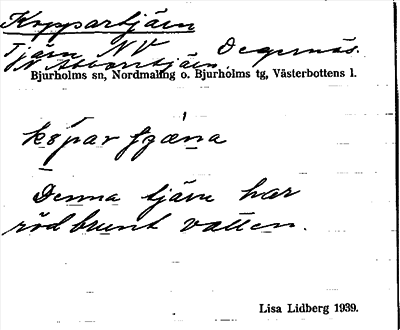 Koppartjärn
Tjärn NV Degernäs.
N Abborrtjärn.
Bjurholms sn, Nordmaling o. Bjurholms tg, Västerbottens l.
Denna tjärn har
rödbrunt vatten.
Lisa Lidberg 1939.